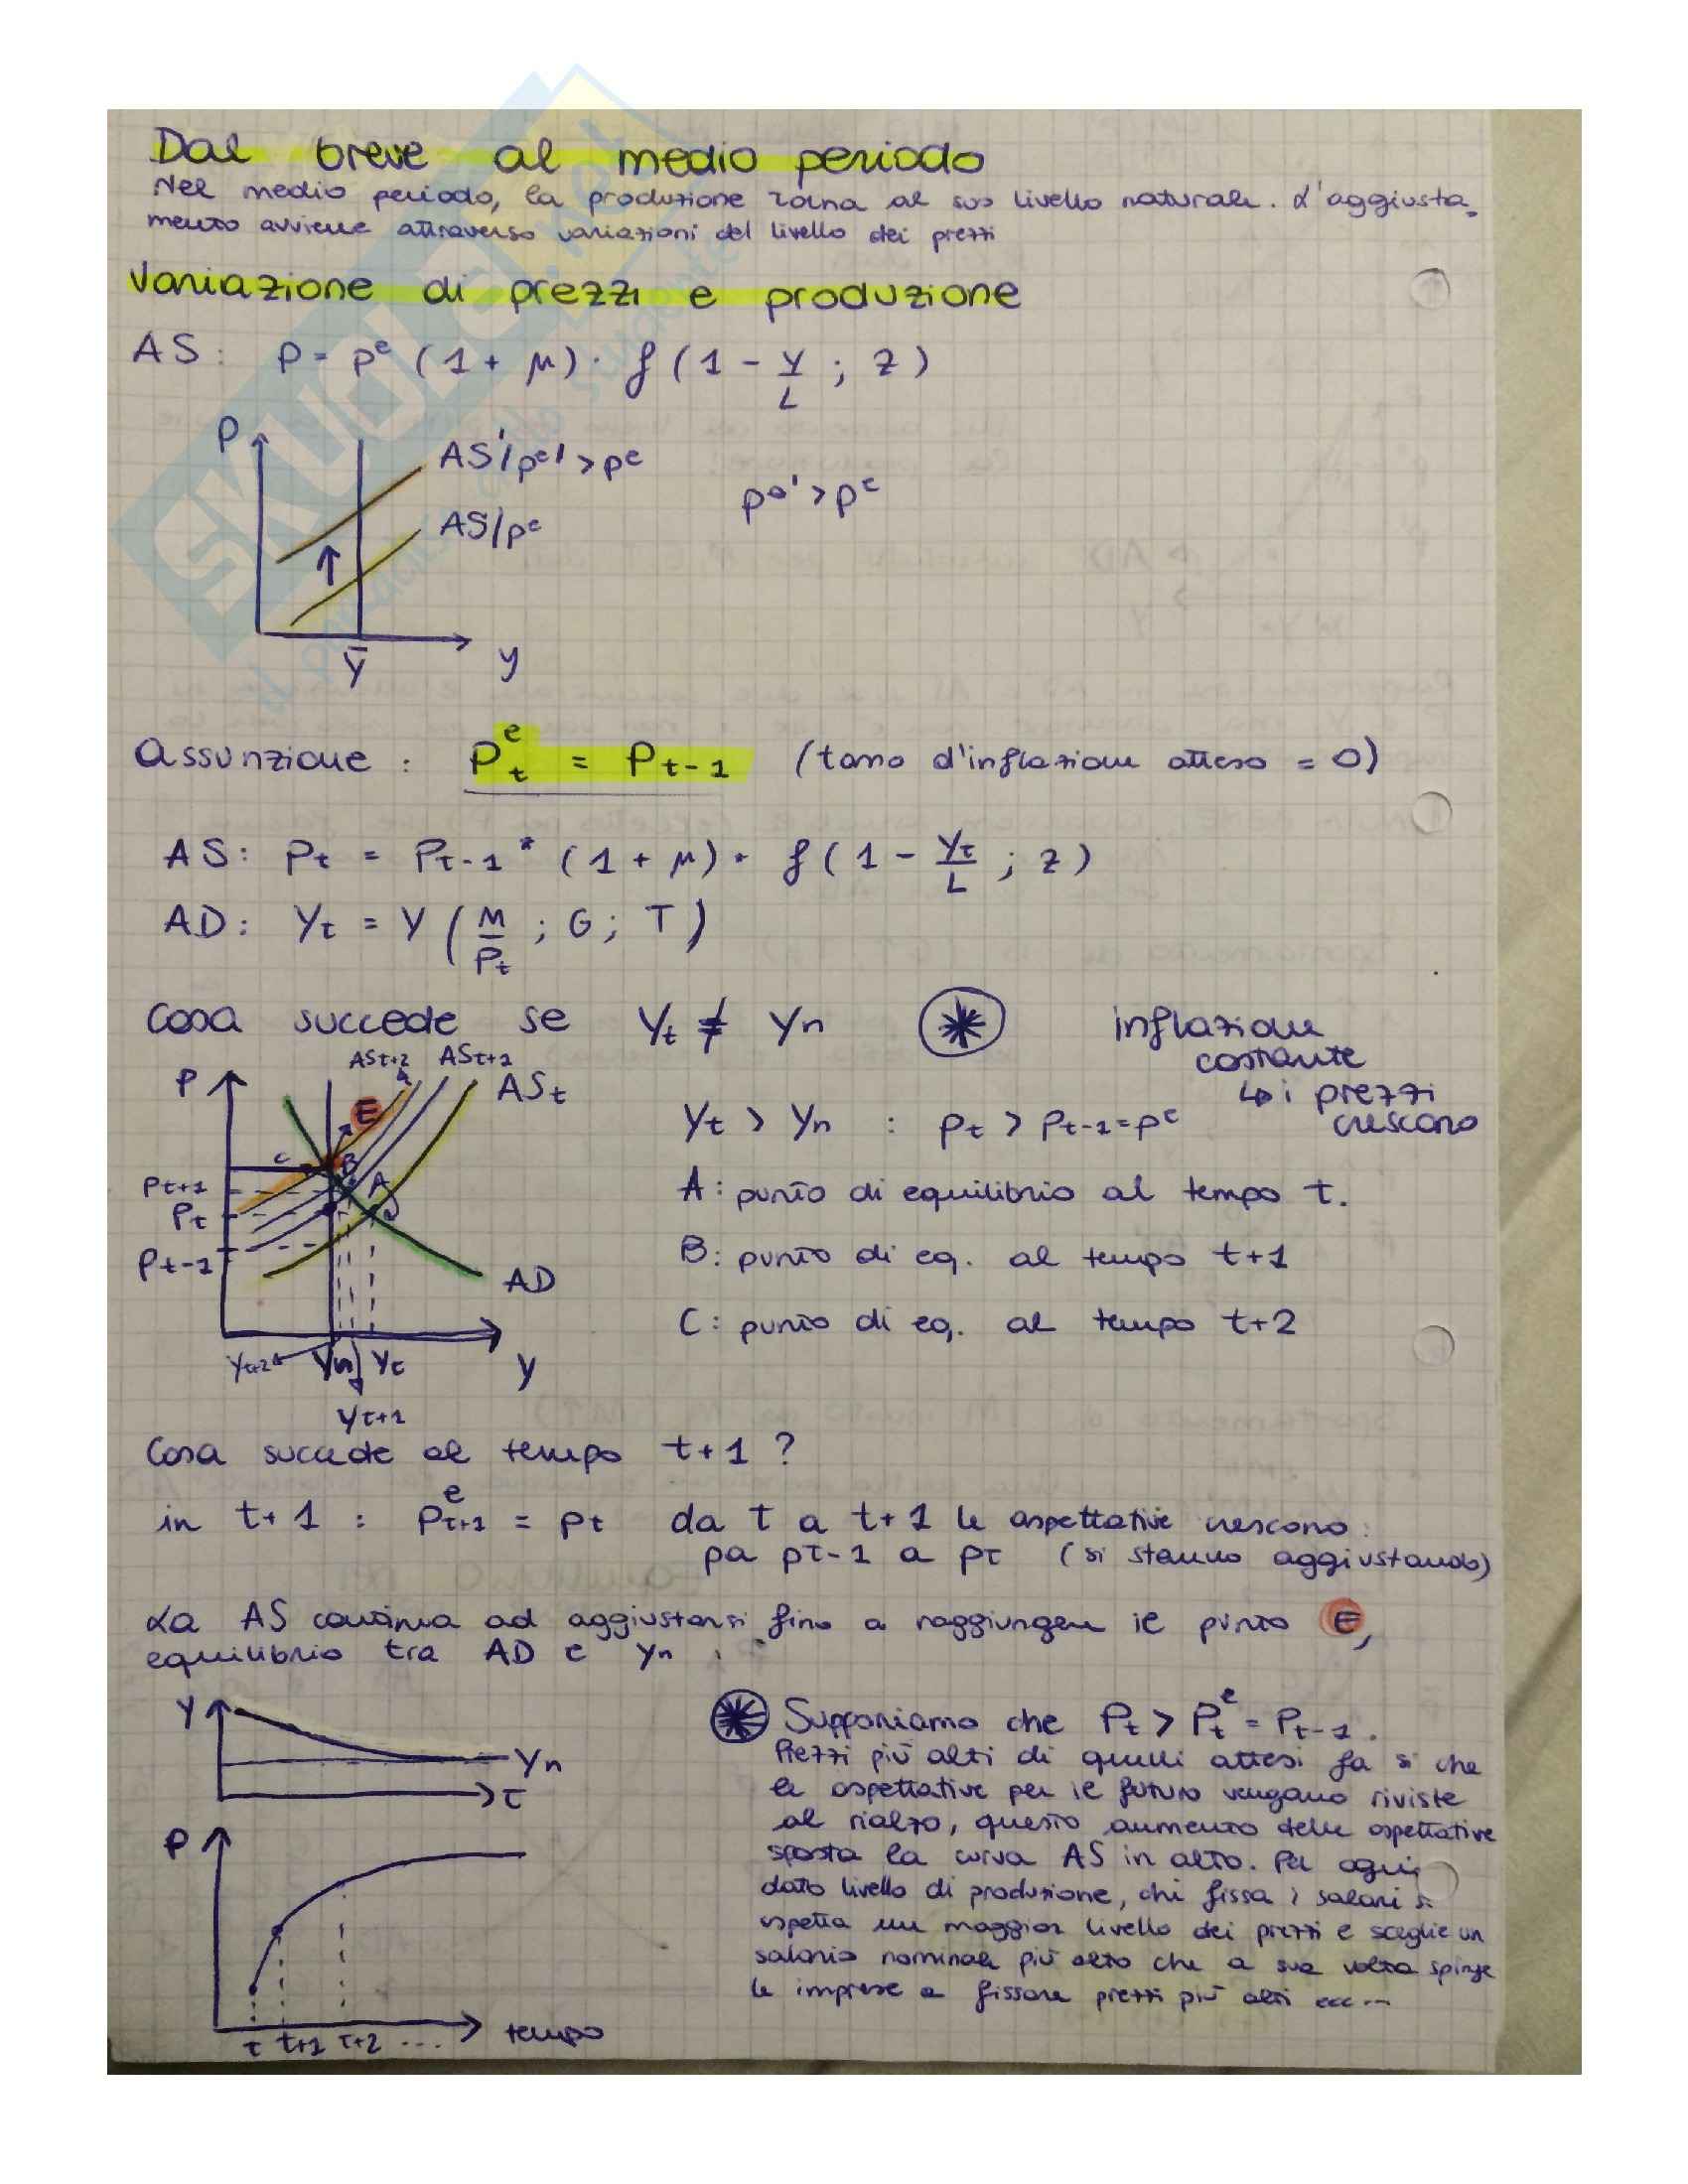 Dal breve al medio periodo
Nel medio periodo, la produzione torna al suo livello naturale. L'aggiusta-
mento avviene attraverso variazioni del livello dei prezzi
Variazione di prezzi e produzione
AS: P = Pᵉ (1 + μ) · f (1 - Y/L ; z)
P
AS'/pᵉ' > pᵉ
pᵉ' > pᵉ
AS/pᵉ
Ȳ
y
Assunzione : Pₜᵉ = Pₜ₋₁ (tasso d'inflazione atteso = 0)
AS: Pₜ = Pₜ₋₁ * (1 + μ) · f (1 - Yₜ/L ; z)
AD: Yₜ = Y (M/Pₜ ; G ; T)
Cosa succede se Yₜ ≠ Yn ✱ inflazione
costante
↳ i prezzi
crescono
ASt+2 ASt+1
P ASt
E
Yt > Yn : Pt > Pt-1 = pᵉ
C B A
A: punto di equilibrio al tempo t.
Pt+1
Pt
B: punto di eq. al tempo t+1
Pt-1
AD
C: punto di eq. al tempo t+2
Yt+2 Yn Yt y
Yt+1
Cosa succede al tempo t+1 ?
in t+1 : Pᵉt+1 = Pt da t a t+1 le aspettative crescono:
pa pt-1 a pt (si stanno aggiustando)
La AS continua ad aggiustarsi fino a raggiungere il punto E,
equilibrio tra AD e Yn
Y
Yn
t
✱ Supponiamo che Pt > Pᵉt = Pt-1.
Prezzi più alti di quelli attesi fa si che
le aspettative per il futuro vengano riviste
al rialzo, questo aumento delle aspettative
sposta la curva AS in alto. Per ogni
dato livello di produzione, chi fissa i salari si
aspetta un maggior livello dei prezzi e sceglie un
salario nominale più alto che a sua volta spinge
le imprese a fissare prezzi più alti ecc...
P
t t+1 t+2 ... tempo
SKUOLA